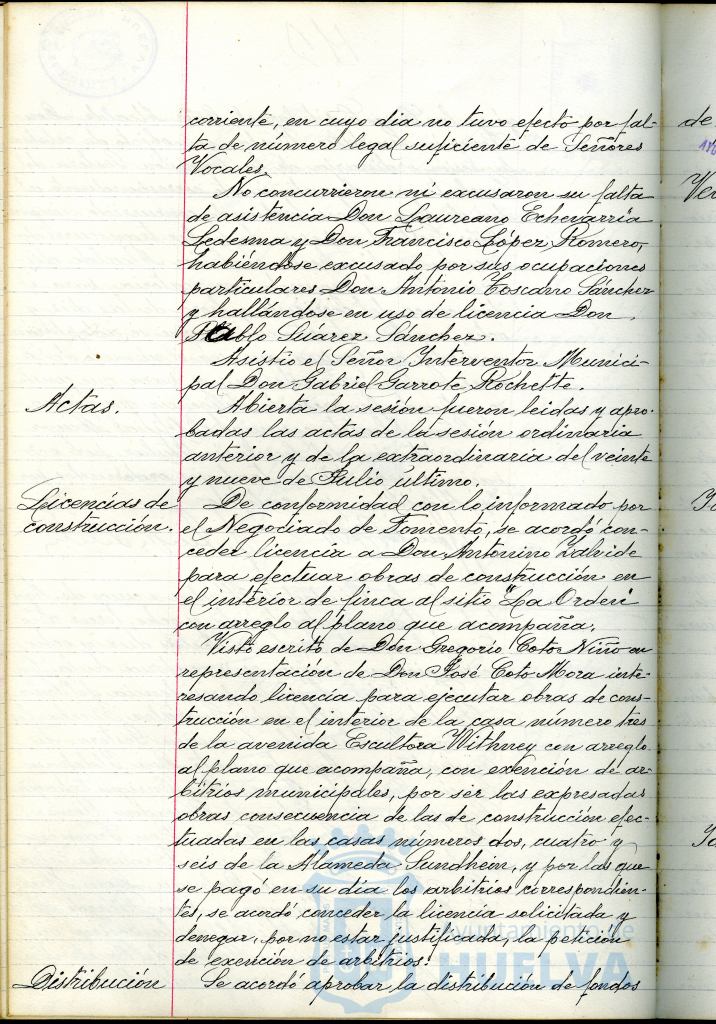 corriente, en cuyo día no tuvo efecto por fal-
ta de número legal suficiente de Señores
Vocales.
No concurrieron ni excusaron su falta
de asistencia Don Laureano Echevarría
Ledesma y Don Francisco López Romero,
habiéndose excusado por sus ocupaciones
particulares Don Antonio Toscano Sánchez
y hallándose en uso de licencia Don
Pablo Suárez Sánchez.
Asistió el Señor Interventor Munici-
pal Don Gabriel Garrote Rochette.
Actas.
Abierta la sesión fueron leidas y apro-
badas las actas de la sesión ordinaria
anterior y de la extraordinaria del veinte
y nueve de Julio último.
Licencias de
construcción.
De conformidad con lo informado por
el Negociado de Fomento, se acordó con-
ceder licencia a Don Antonino Zalvide
para efectuar obras de construcción en
el interior de finca al sitio "La Orden"
con arreglo al plano que acompaña.
Visto escrito de Don Gregorio Coto Niño en
representación de Don José Coto Mora inte-
resando licencia para ejecutar obras de cons-
trucción en el interior de la casa número tres
de la avenida Escultora Withney con arreglo
al plano que acompaña, con exención de ar-
bitrios municipales, por ser las expresadas
obras consecuencia de las de construcción efec-
tuadas en las casas números dos, cuatro y
seis de la Alameda Sundhein, y por las que
se pagó en su día los arbitrios correspondien-
tes, se acordó conceder la licencia solicitada y
denegar, por no estar justificada, la petición
de exención de arbitrios.
Distribución
Se acordó aprobar la distribución de fondos
de
Ayuntamiento de
HUELVA